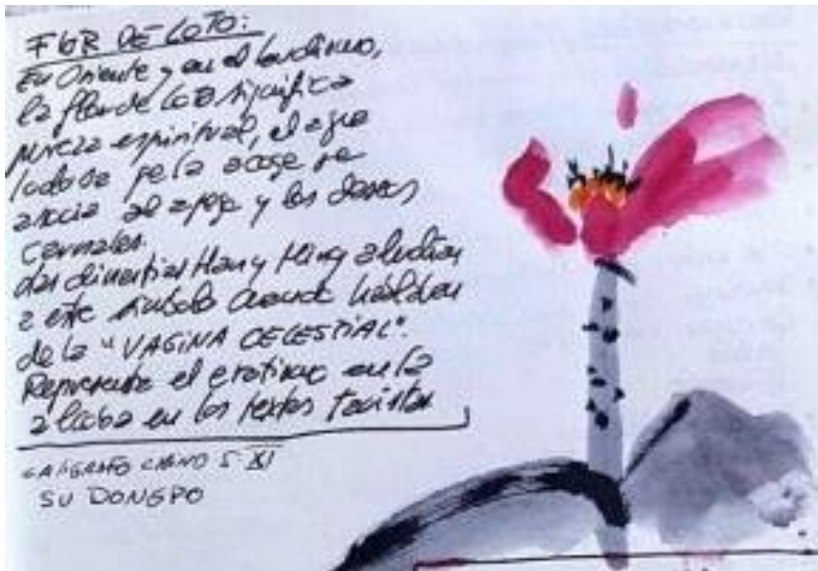 FLOR DE LOTO:
En Oriente y en el budismo,
la flor de loto significa
pureza espiritual, el agua
lodosa que la acoge se
asocia al apego y los deseos
carnales.
Las dinastías Han y Ming aludían
a este símbolo cuando hablaban
de la "VAGINA CELESTIAL".
Representa el erotismo en la
alcoba en los textos taoistas
CALIGRAFO CHINO S. XI
SU DONGPO